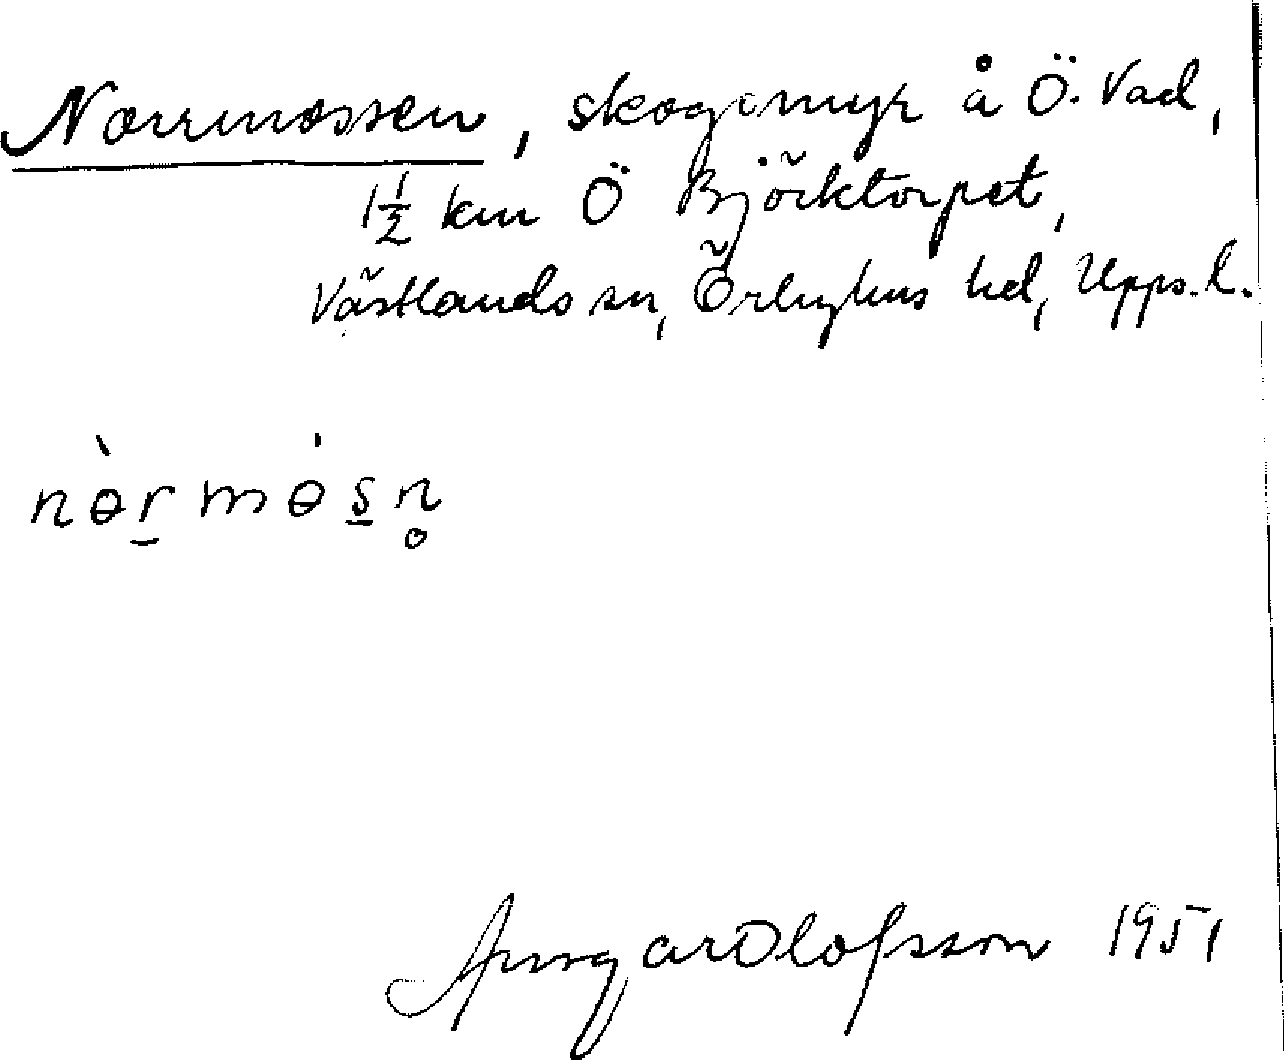 Norrmossen, skogsmyr å Ö. Vad,
1½ km Ö Björktorpet,
Västlands sn, Örbyhus hd, Upps. l.
nɵ̀r̠mɵ́s̠n̥
Ansgar Olofsson 1951